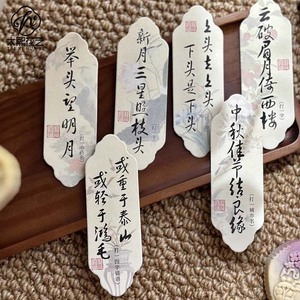 举头望明月
新月
三星
枝头
上头去上头
下头是下头
云破眉月倚西楼
(打一字)
或重于泰山
或轻于鸿毛
中秋佳节结良缘
(打一城市名)